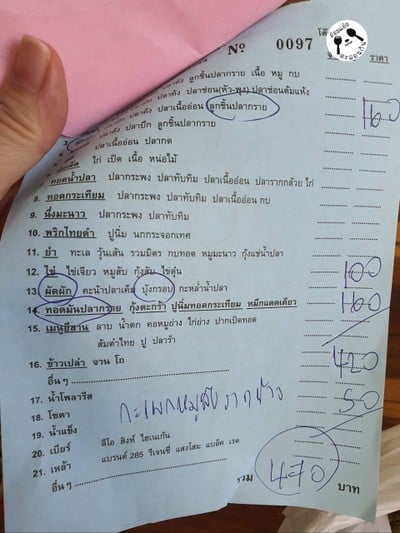 อ้วนตุ้ย ตะลอนกิน
Nº 0097 โต๊
ราคา
ลูกชิ้นปลากราย เนื้อ หมู กบ
ปลาคัง ปลาช่อน(หัว-พุง) ปลาช่อนต้มแห้ง
ปลาคัง ปลาเนื้ออ่อน ลูกชิ้นปลากราย 160
ปลาคัง ปลาบึก ลูกชิ้นปลากราย
ปลาเนื้ออ่อน ปลากด
ไก่ เป็ด เนื้อ หน่อไม้
7. ทอดน้ำปลา ปลากระพง ปลาทับทิม ปลาเนื้ออ่อน ปลารากกล้วย ไก่
8. ทอดกระเทียม ปลากระพง ปลาทับทิม ปลาเนื้ออ่อน กบ
9. นึ่งมะนาว ปลากระพง ปลาทับทิม
10. พริกไทยดำ ปูนิ่ม นกกระจอกเทศ
11. ยำ ทะเล วุ้นเส้น รวมมิตร กบทอด หมูมะนาว กุ้งแช่น้ำปลา
12. ไข่ ไข่เจียว หมูสับ กุ้งสับ ไข่ตุ๋น
13. ผัดผัก คะน้าปลาเค็ม บุ้งกรอบ กะหล่ำน้ำปลา 100
14. ทอดมันปลากราย กุ้งตะกร้า ปูนิ่มทอดกระเทียม หมึกแดดเดียว 160
15. เมนูอีสาน ลาบ น้ำตก คอหมูย่าง ไก่ย่าง ปากเป็ดทอด
ส้มตำไทย ปู ปลาร้า
16. ข้าวเปล่า จาน โถ 420
อื่นๆ
17. น้ำโพลาริส 50
18. โซดา กะเพกหมูสับราดข้าว
19. น้ำแข็ง
20. เบียร์ ลีโอ สิงห์ ไฮเนเก้น
21. เหล้า แบรนด์ 285 รีเจนซี่ แสงโสม แบล็ค เรด
อื่นๆ รวม 470 บาท